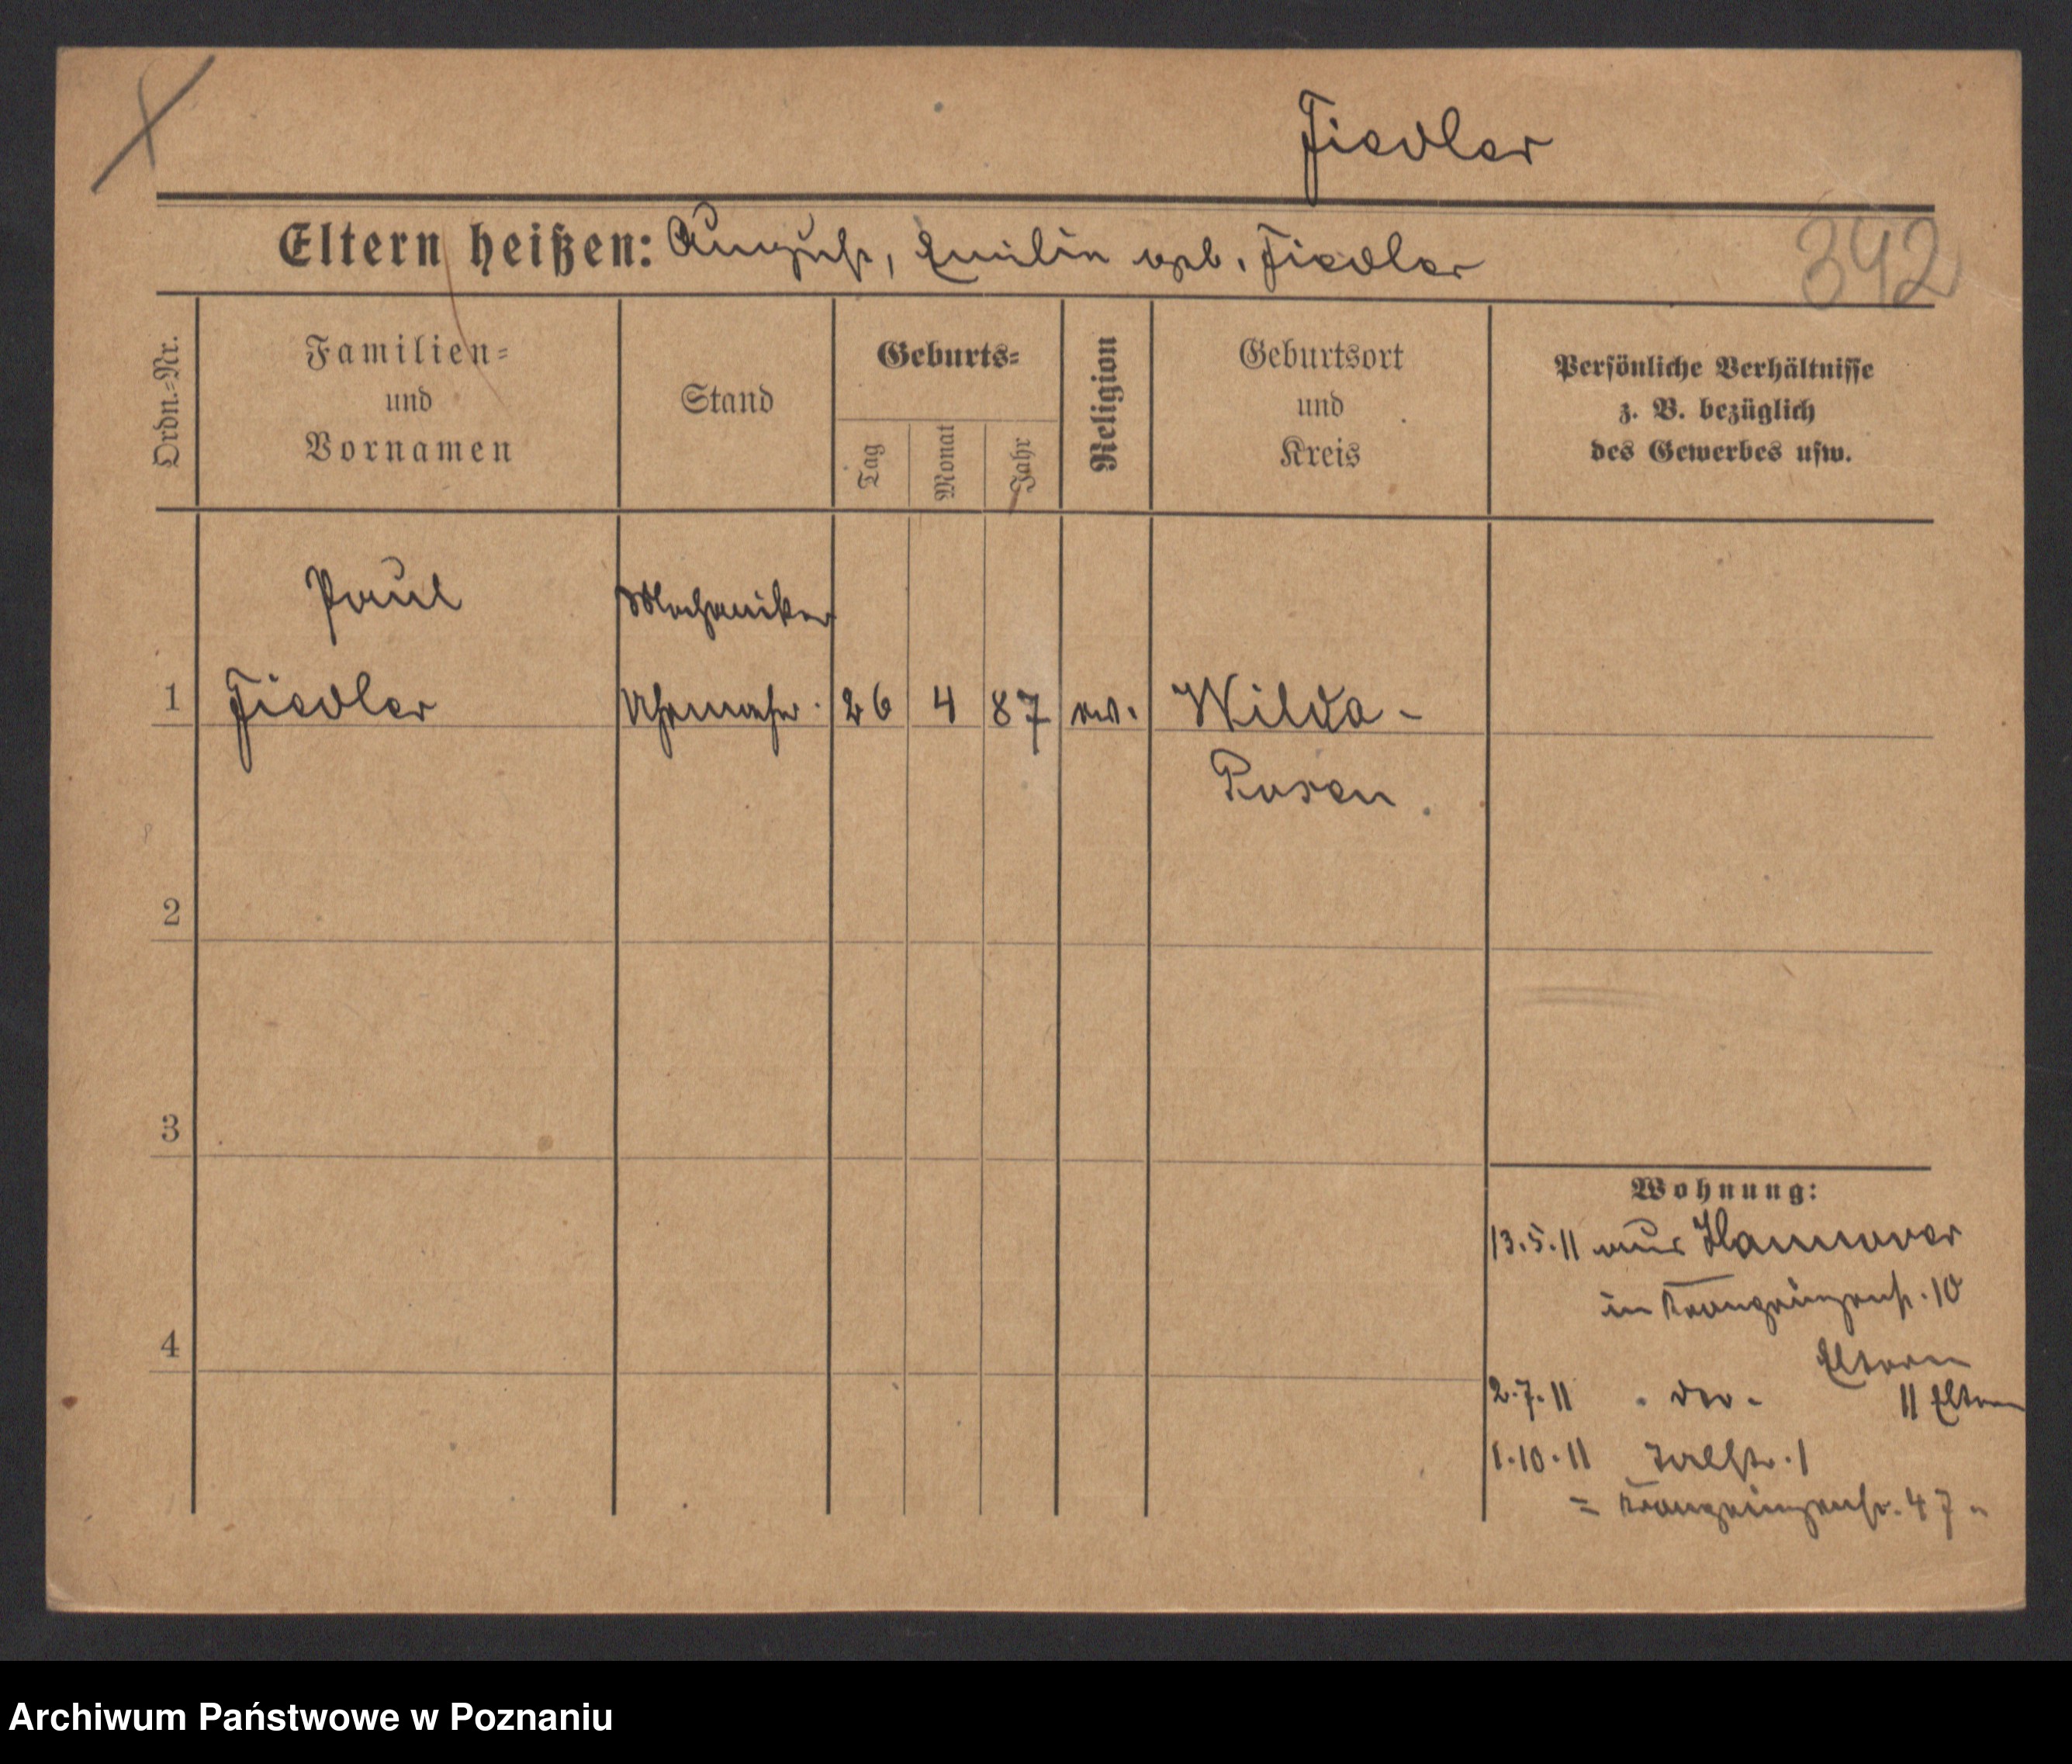 Fiedler
Eltern heißen: August, Emilie geb. Fiedler
342
Ordn.-Nr.
Familien-
und
Vornamen
Stand
Geburts-
Tag
Monat
Jahr
Religion
Geburtsort
und
Kreis
Persönliche Verhältnisse
z. B. bezüglich
des Gewerbes usw.
Paul
Mechaniker
1 Fiedler Uhrmacher. 26 4 87 ev. Wilda -
Posen
2
3
4
Wohnung:
13.5.11 aus Hannover
in Kronprinzenstr. 10
Eltern
2.7.11 11 Eltern
1.10.11 Talstr. 1
= Kronprinzenstr. 47
Archiwum Państwowe w Poznaniu